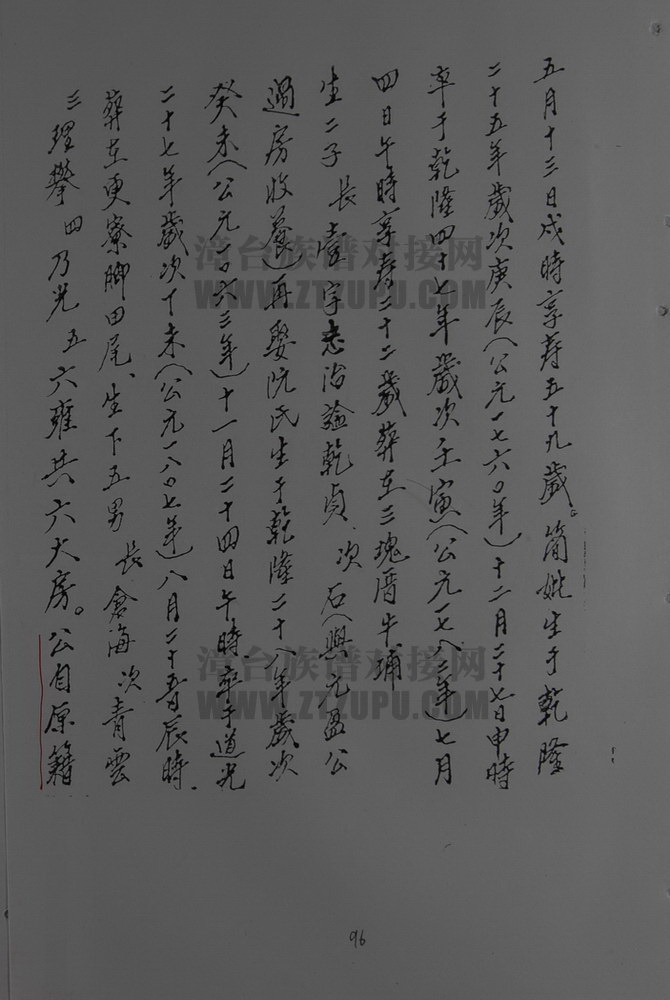 五月十三日戌時享寿五十九歲。簡妣生于乾隆
二十五年歲次庚辰(公元一七六〇年)十二月二十七日申時
卒于乾隆四十七年歲次壬寅(公元一七八二年)七月
四日午時享寿二十二歲葬在三塊厝牛埔
生二子 長壹字志治諡乾貞、次石(與元盈公
過房收養)再娶阮氏生于乾隆二十八年歲次
癸未(公元一〇六三年)十一月二十四日午時卒于道光
二十七年歲次丁未(公元一八〇七年)八月二十五日辰時
葬在更寮脚田尾、生下五男 長倉海 次青雲
三理攀 四乃光 五六雍共六大房。公自原籍
96
漳台族谱对接网
WWW.ZTZUPU.COM
漳台族谱对接网
WWW.ZTZUPU.COM